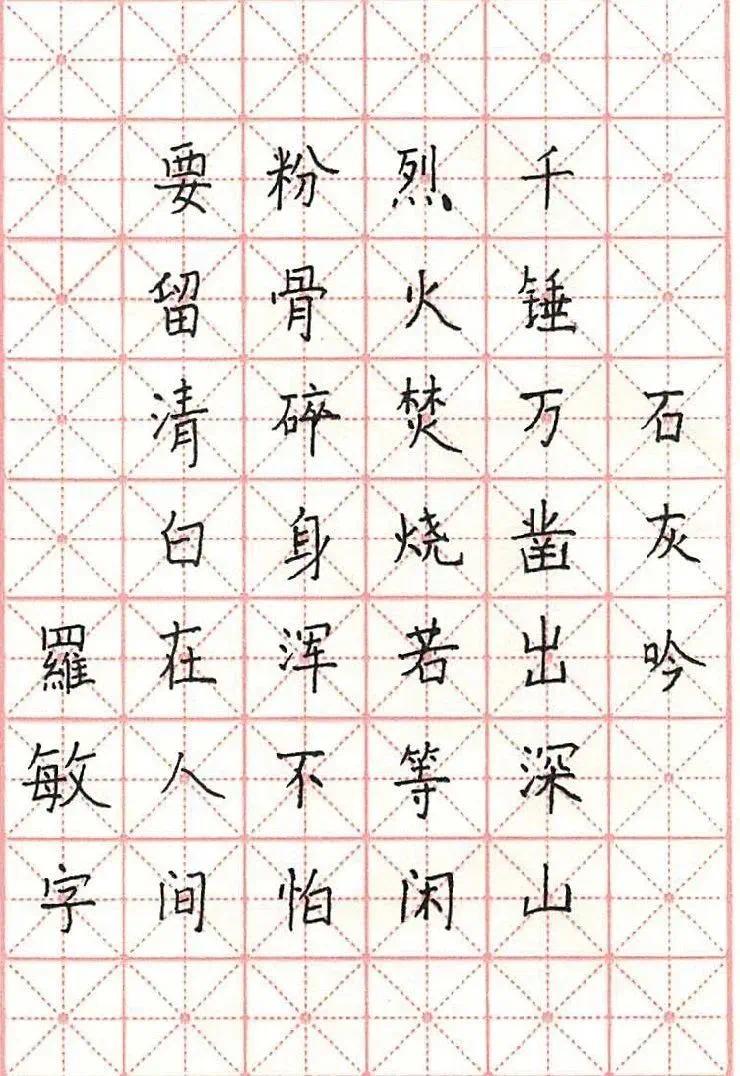 石灰吟
千锤万凿出深山
烈火焚烧若等闲
粉骨碎身浑不怕
要留清白在人间
羅敏字